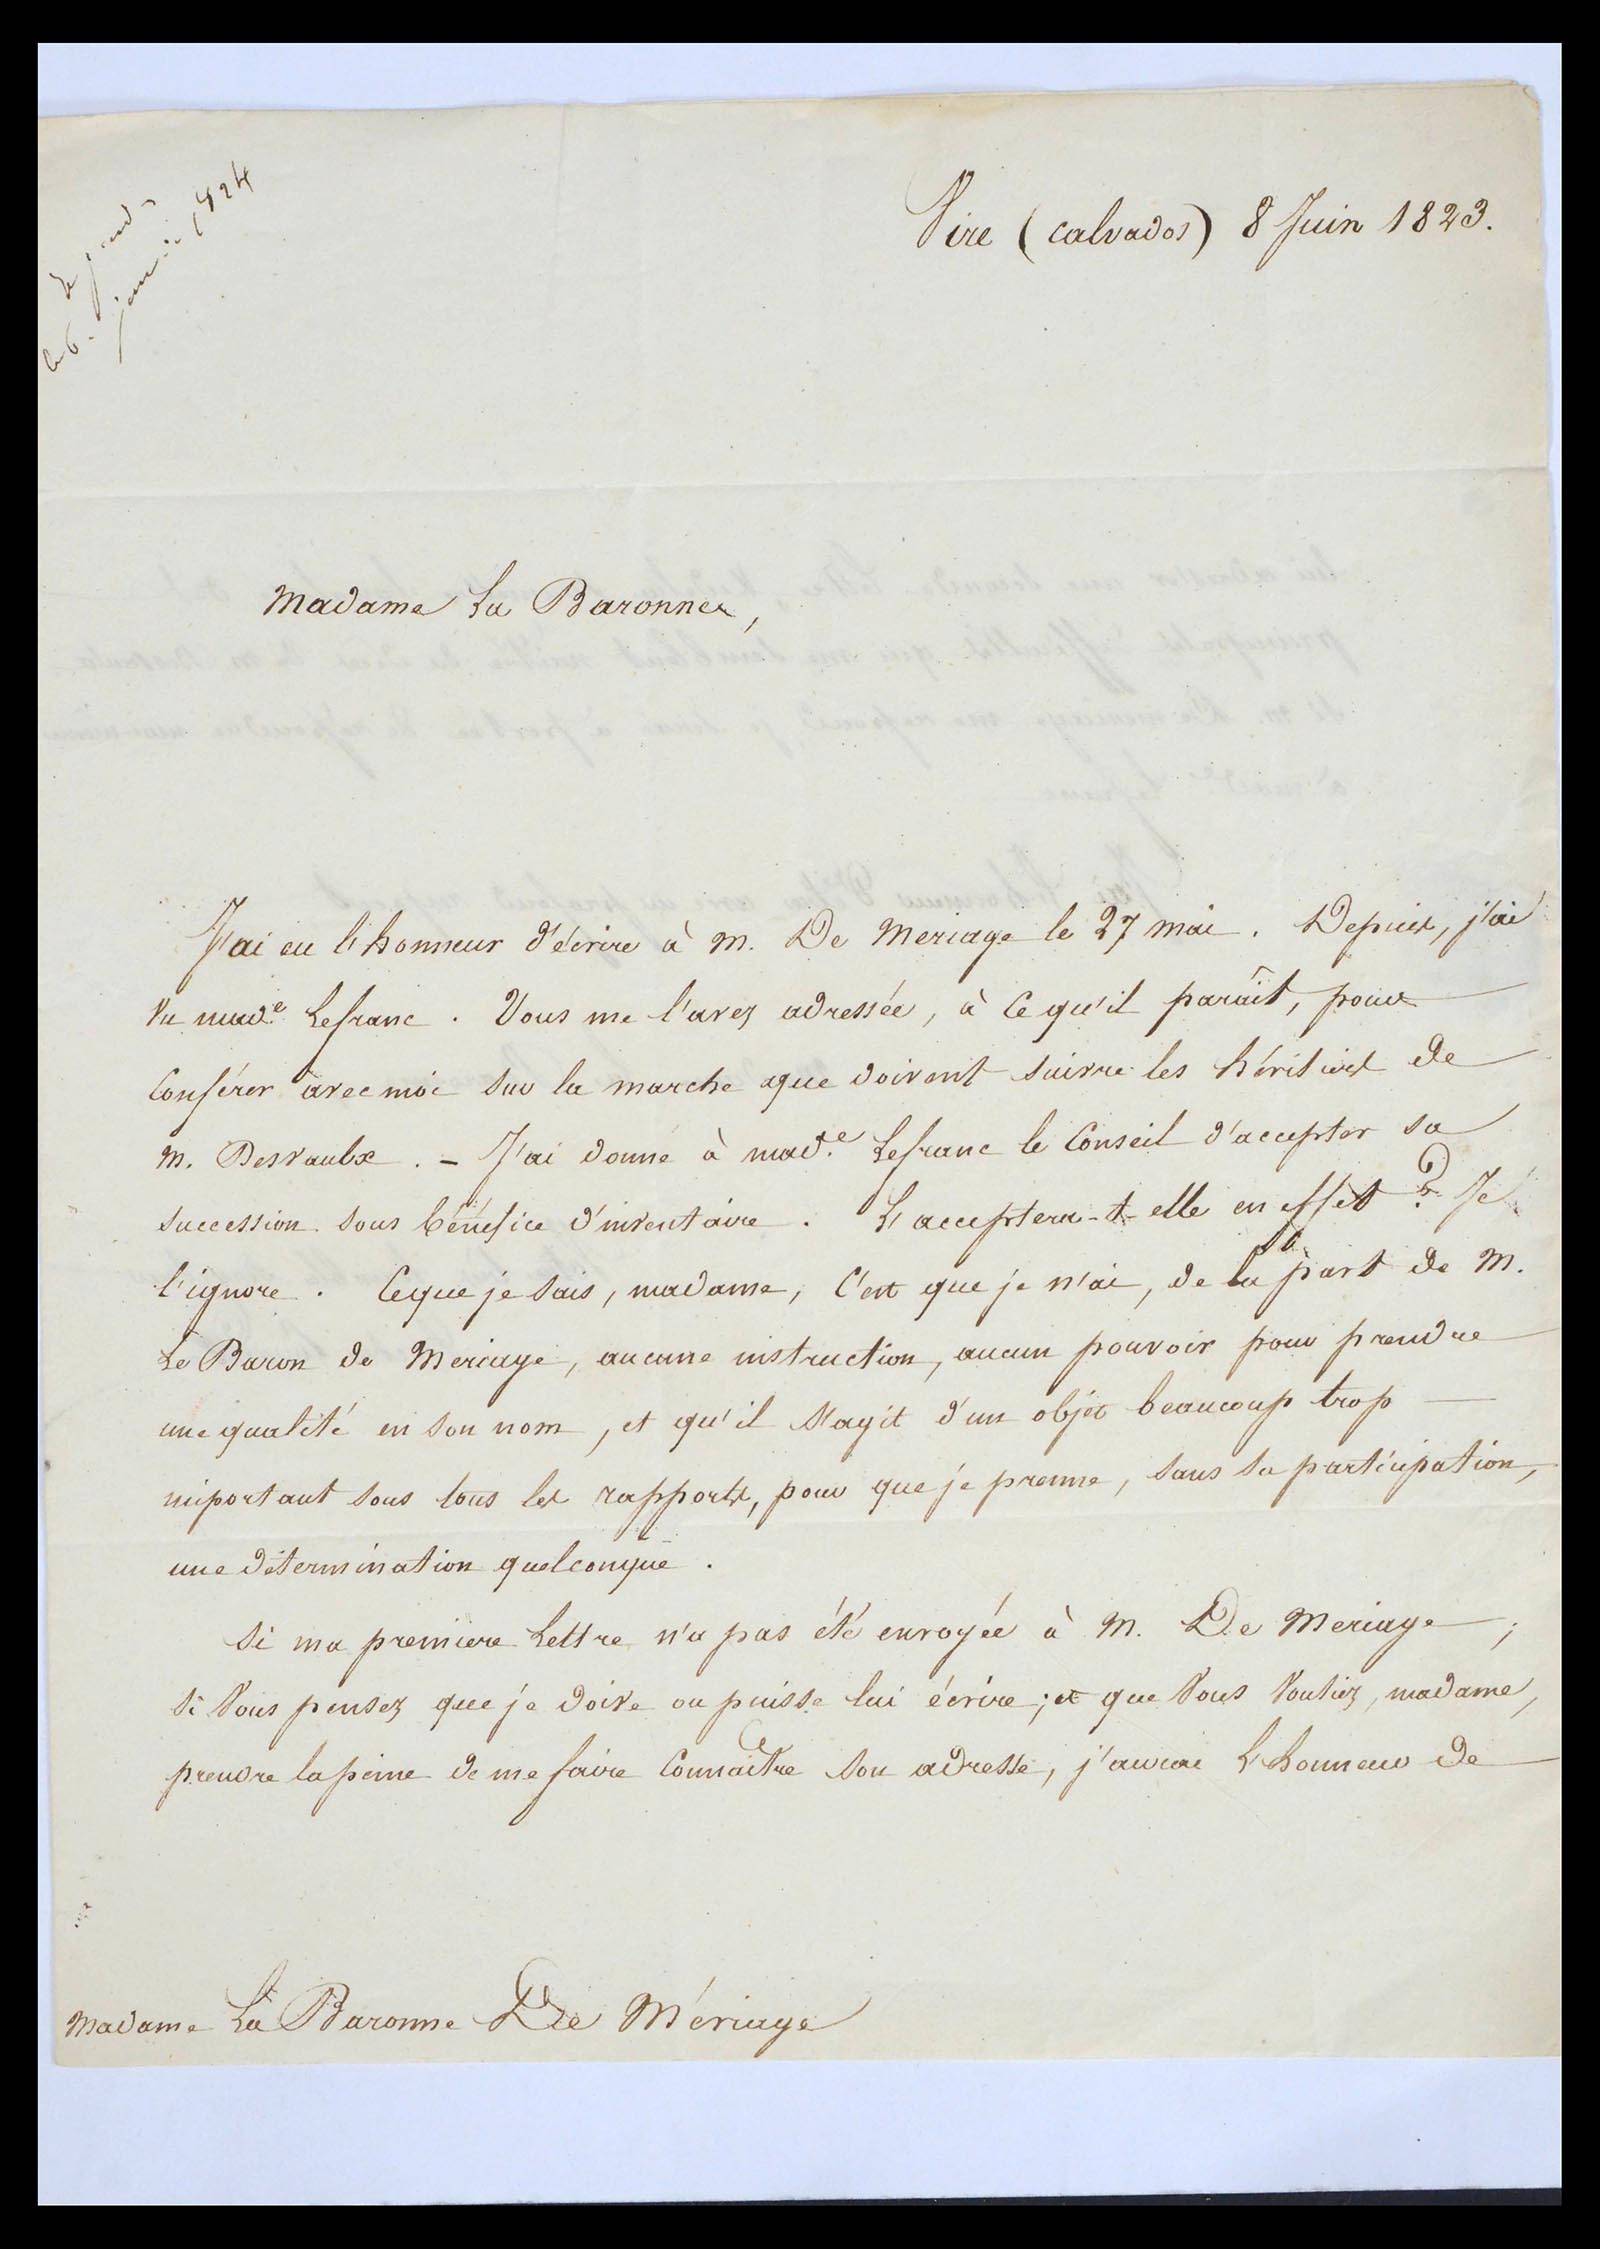 janvier 1824
Vire (Calvados) 8 Juin 1823.
Madame La Baronne,
J'ai eu l'honneur d'écrire à M. De Meriage le 27 mai. Depuis, j'ai
vu mad.e Lefranc. Vous me l'avez adressée, à ce qu'il paraît, pour
conférer avec moi sur la marche que doivent suivre les héritiers de
M. Desvaulx. – J'ai donné à mad.e Lefranc le Conseil d'accepter sa
succession sous bénéfice d'inventaire. L'acceptera-t-elle en effet ? Je
l'ignore. Ce que je sais, madame, c'est que je n'ai, de la part de M.
Le Baron de Meriage, aucune instruction, aucun pouvoir pour prendre
une qualité en son nom, et qu'il s'agit d'un objet beaucoup trop
important sous tous les rapports, pour que je prenne, sans sa participation,
une détermination quelconque.
Si ma premiere Lettre n'a pas été envoyée à M. De Meriage ;
si vous pensez que je doive ou puisse lui écrire ; et que vous vouliez, madame,
prendre la peine de me faire connaître son adresse, j'aurai l'honneur de
Madame La Baronne De Mériage